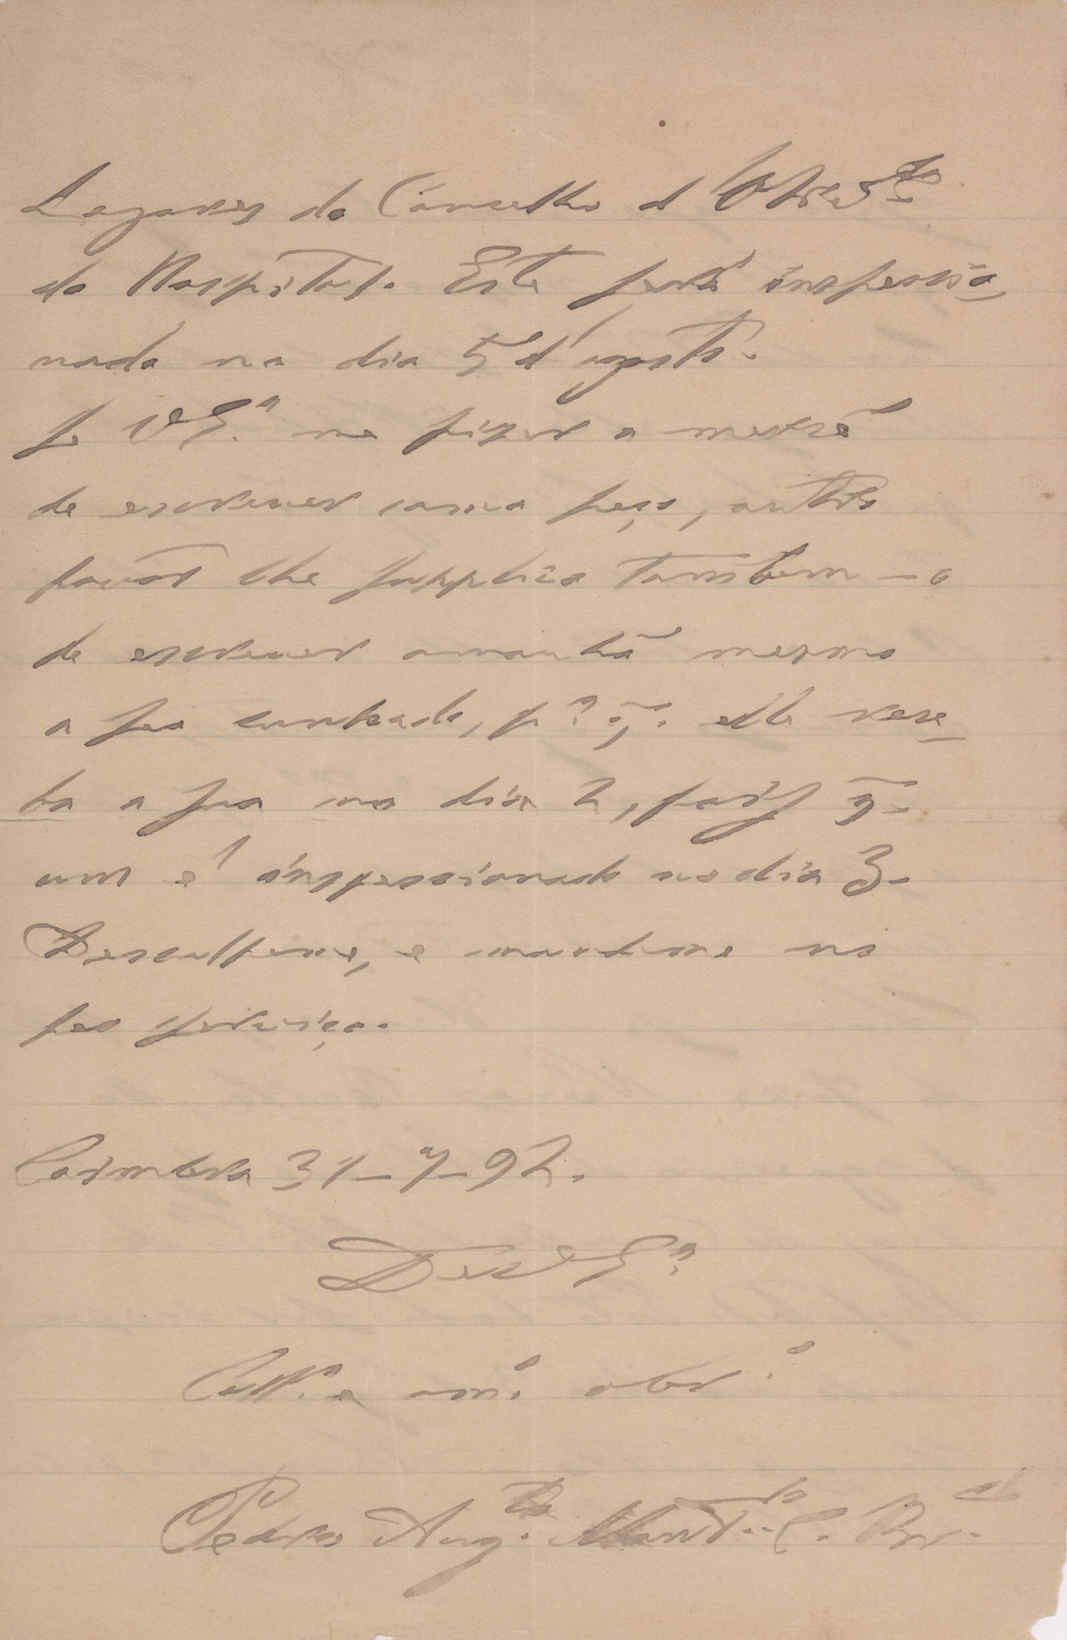 Lagares do Conselho d'Olivr.ª
do Hospital. Este será inspecio-
nado no dia 5 d'agosto.
Se V Ex.ª me fizer a mercê
de escrever como peço, outro
favor lhe supplico tambem – o
de escrever amanhã mesmo
a seu cunhado, p.ª q. elle rece-
ba a sua no dia 2, pois q.
um é inspeccionado no dia 3.
Desculpeme, e mandeme no
seu serviço.
Coimbra 31–7–92.
De V Ex.ª
Coll.ª e am.º obr.º
Pedro Aug.to Mart.